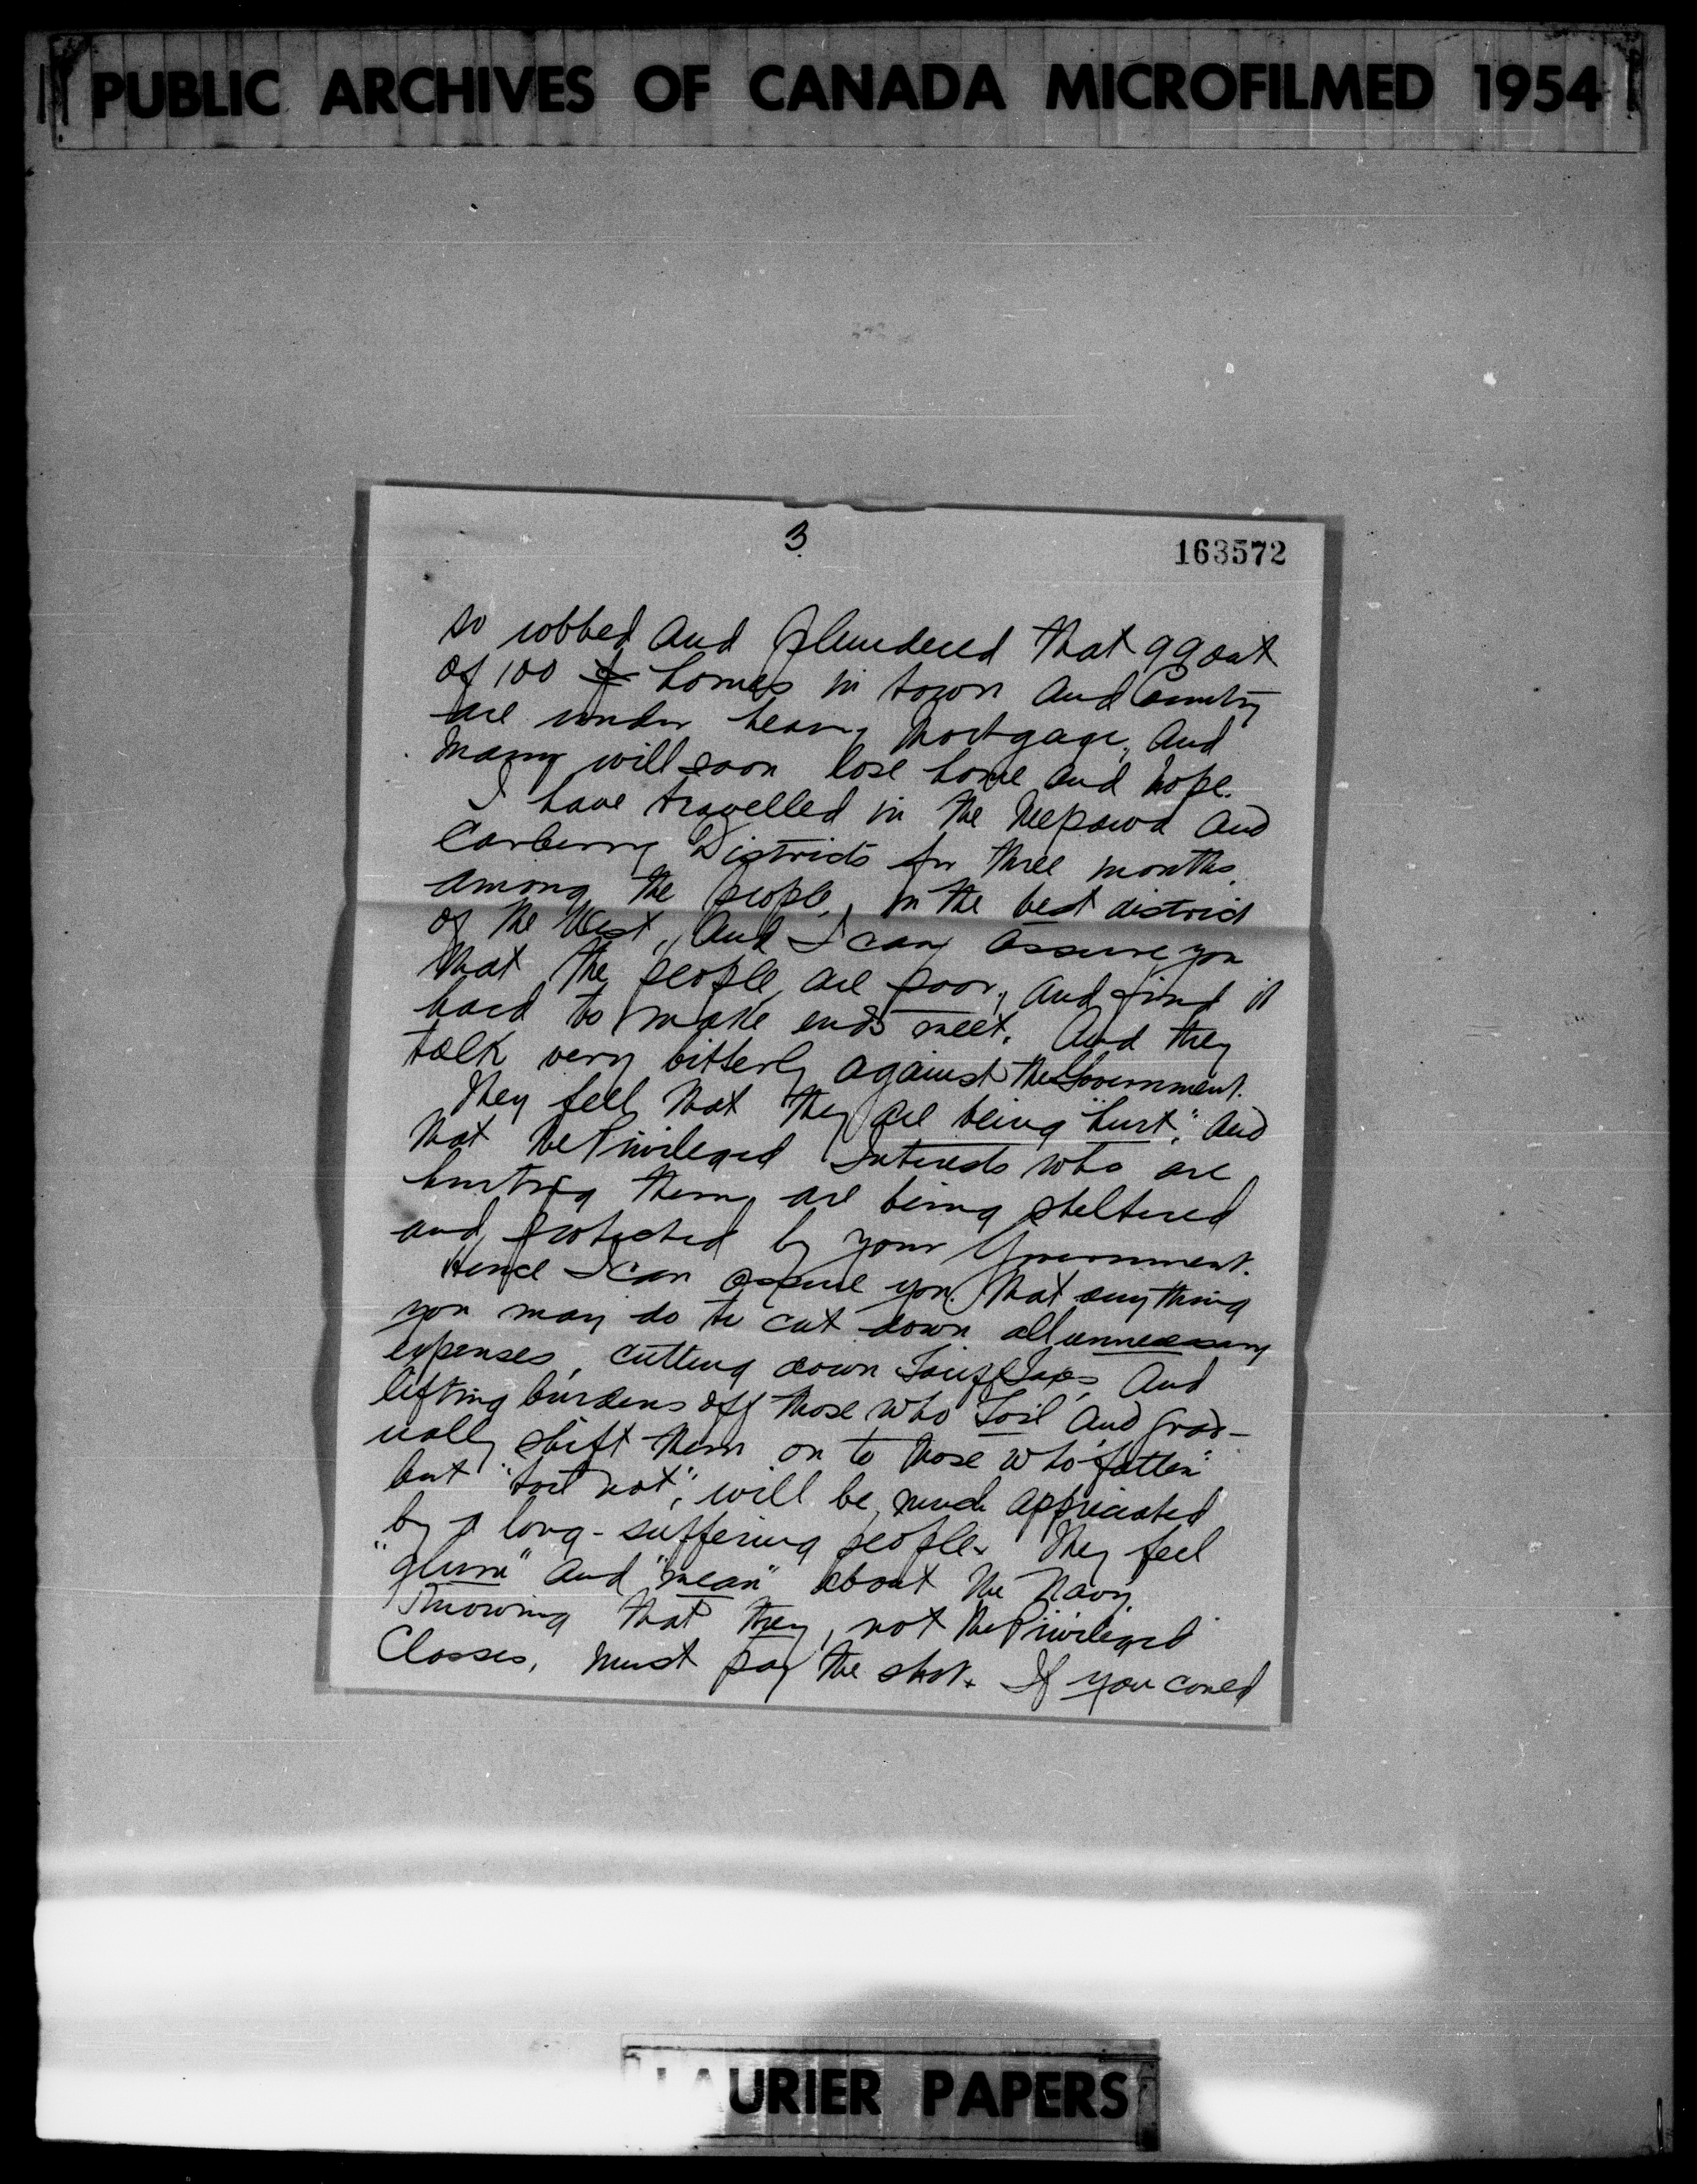 PUBLIC ARCHIVES OF CANADA MICROFILMED 1954
3
163572
so robbed and plundered that 99 out
of 100 homes in town and Country
are under heavy mortgage, and
many will soon lose home and hope.
I have travelled in the Neepawa and
Carberry Districts for three months.
among the people, in the best district
of the West, and I can assure you
that the people are poor, and find it
hard to make ends meet. And they
talk very bitterly against the Government.
They feel that they are being "hurt", and
that the Privileged Interests who are
hurting them, are being sheltered
and protected by your Government.
Hence I can assure you that anything
you may do to cut down all unnecessary
expenses, cutting down Tariff Taxes, And
lifting burdens off those who Toil and grad-
ually shift them on to those who "fatten"
but "toil not", will be much appreciated
by a long-suffering people. They feel
"glum" and "mean" about the Navy,
Knowing that they, not the Privileged
Classes, must pay the shot. If you could
LAURIER PAPERS